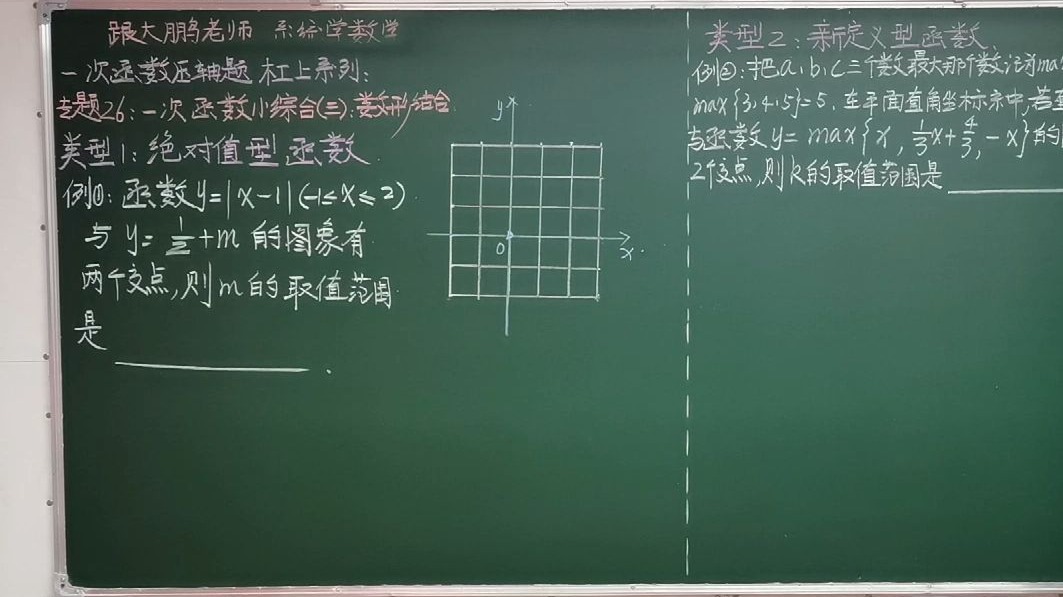 跟大鹏老师 系统学数学
一次函数压轴题 杠上系列:
专题26:一次函数小综合(三):数形结合
类型1:绝对值型函数
例①:函数y=|x-1|(-1≤x≤2)
与 y=1/2+m 的图象有
两个交点,则m的取值范围
是 ________.
y
0
x
类型2:新定义型函数
例②:把a,b,c三个数最大那个数记为ma
max{3,4,5}=5,在平面直角坐标系中,若直
与函数y=max{x,1/3x+4/3,-x}的
2个交点,则k的取值范围是 ________